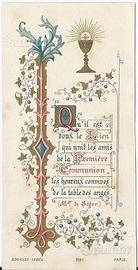 Qu'il est
doux le lien
qui unit les amis
de la Première
Communion,
les heureux convives
de la table des anges
(Mgr de Ségur)
BOUASSE-LEBEL
PARIS